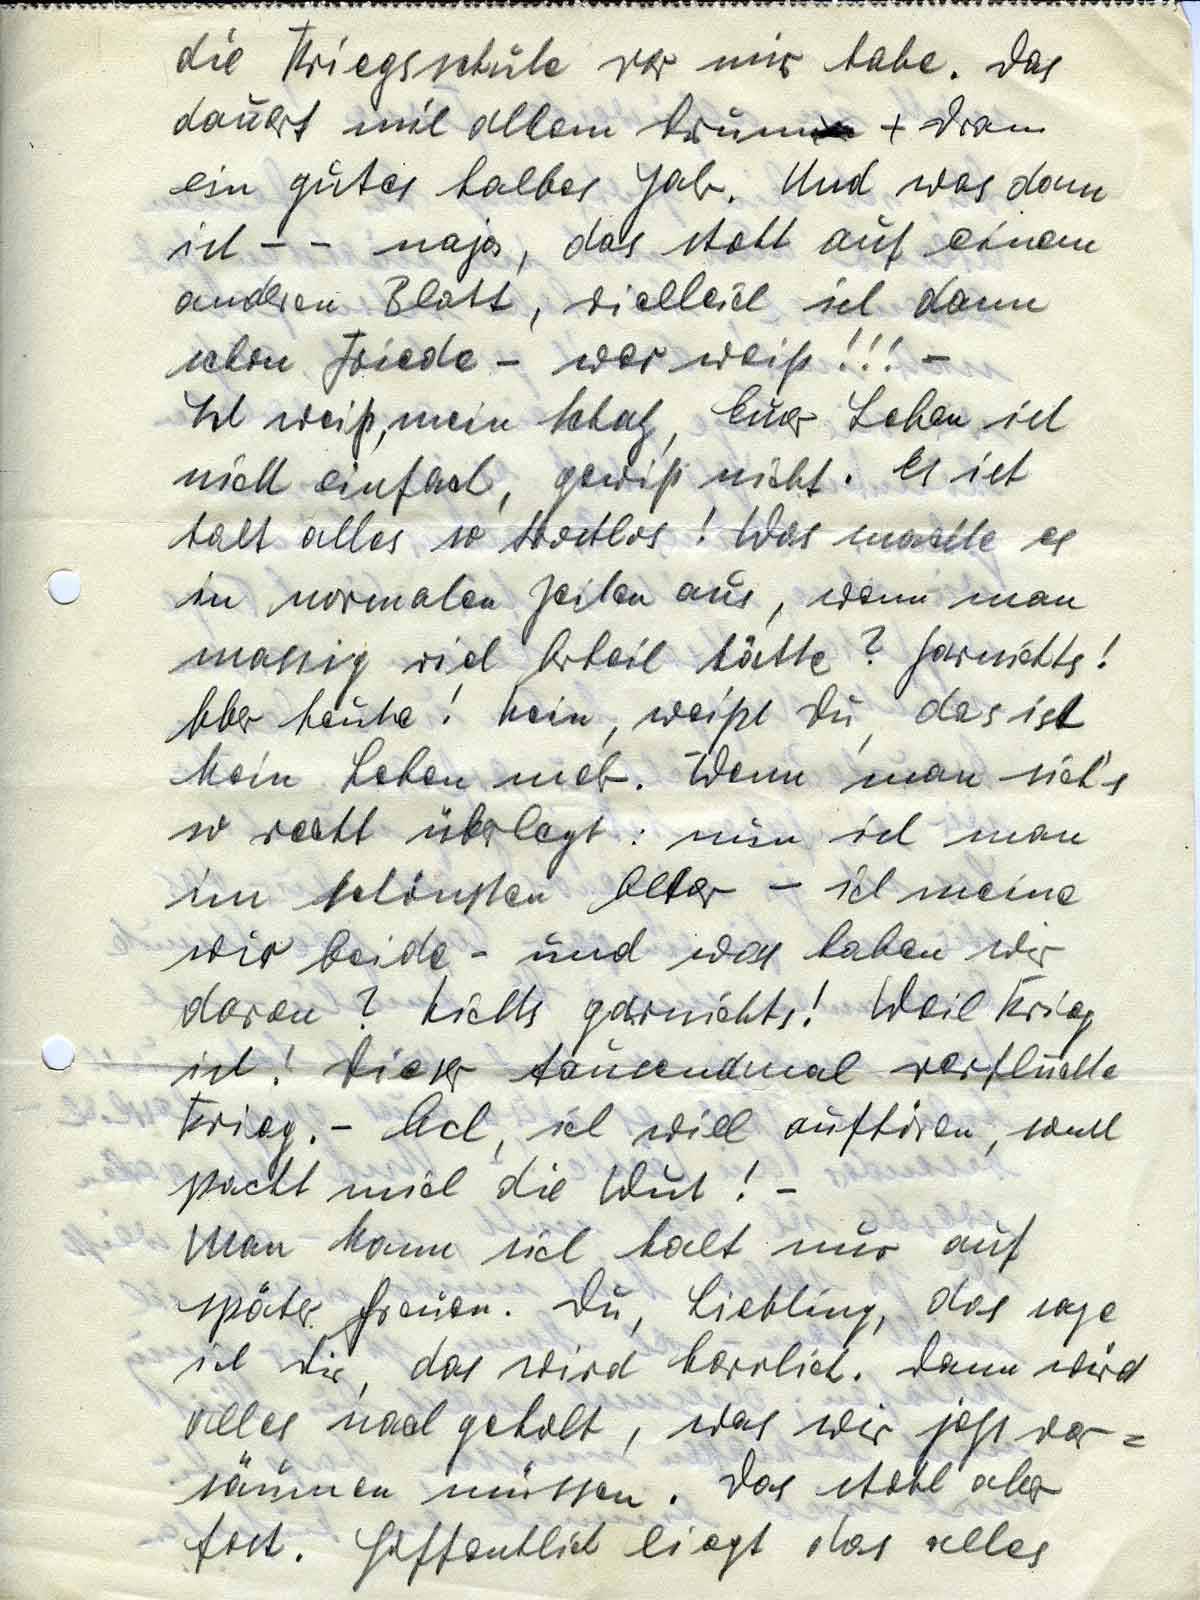 die Kriegsschule vor mir habe. Das
dauert mit allem drum + dran
ein gutes halbes Jahr. Und was dann
ist - - naja, das steht auf einem
anderen Blatt, vielleicht ist dann
schon Friede - wer weiß!!! -
Ich weiß, mein Schatz, Euer Leben ist
nicht einfach, gewiß nicht. Es ist
halt alles so trostlos! Was machte es
in normalen Zeiten aus, wenn man
massig viel Arbeit hätte? Garnichts!
Aber heute! Nein, weißt Du, das ist
kein Leben mehr. Wenn man sich's
so recht überlegt: nun ist man
im schönsten Alter - ich meine
wir beide - und was haben wir
daran? Nichts garnichts! Weil Krieg
ist! Dieser tausendmal verfluchte
Krieg. - Ach, ich will aufhören, sonst
packt mich die Wut! -
Man kann sich halt nur auf
später freuen. Du, Liebling, das sage
ich Dir, das wird herrlich. Dann wird
alles nachgeholt, was wir jetzt ver=
säumen müssen. Das steht aber
fest. Hoffentlich liegt das alles